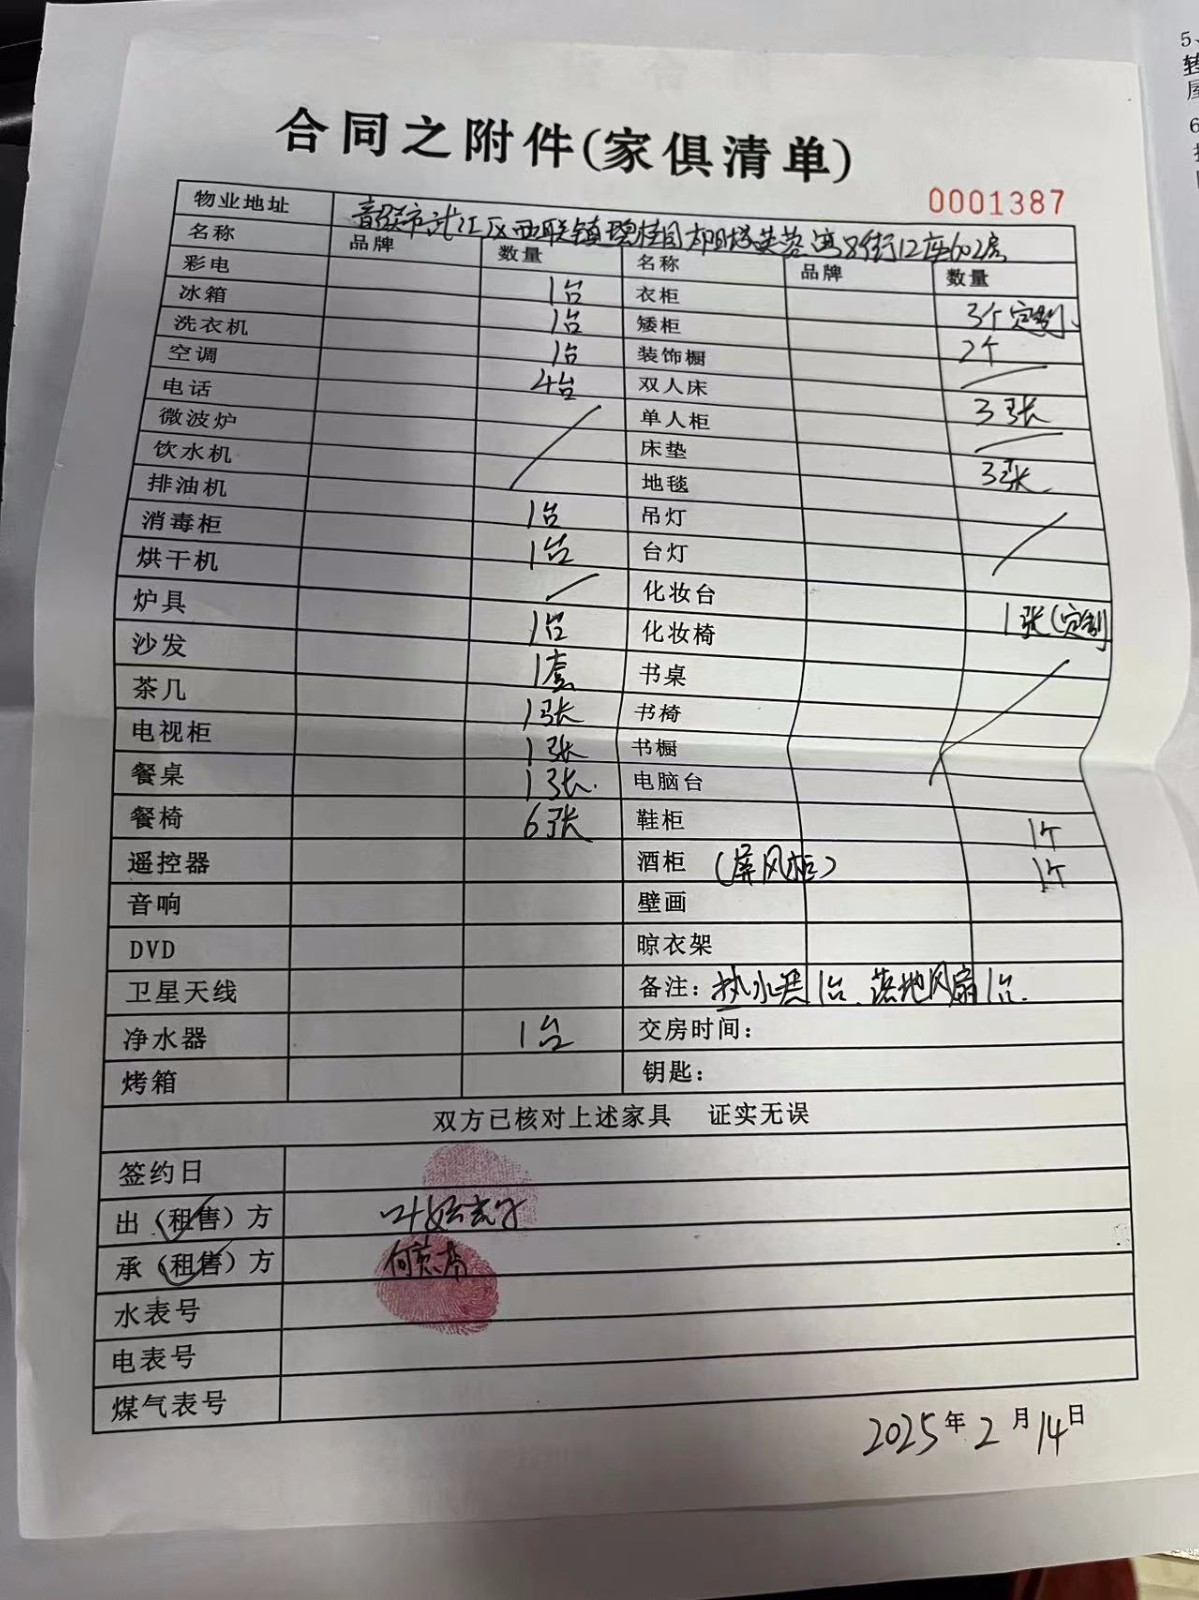 合同之附件(家俱清单)
0001387
物业地址 韶关市武江区西联镇碧桂园太阳城芙蓉湾8街12座602房
名称 品牌 数量 名称 品牌 数量
彩电 1台 衣柜 3个定制
冰箱 1台 矮柜 2个
洗衣机 1台 装饰橱
空调 4台 双人床 3张
电话 单人柜
微波炉 床垫 3张
饮水机 地毯
排油机 1台 吊灯
消毒柜 1台 台灯
烘干机 化妆台 1张(定制
炉具 1台 化妆椅
沙发 1套 书桌
茶几 1张 书椅
电视柜 1张 书橱
餐桌 1张 电脑台
餐椅 6张 鞋柜 1个
遥控器 酒柜 (屏风柜) 1个
音响 壁画
DVD 晾衣架
卫星天线 备注: 热水器1台、落地风扇1台.
净水器 1台 交房时间:
烤箱 钥匙:
双方已核对上述家具 证实无误
签约日
出(租售)方
承(租售)方
水表号
电表号
煤气表号
2025年2月14日
5、
转
屋
6